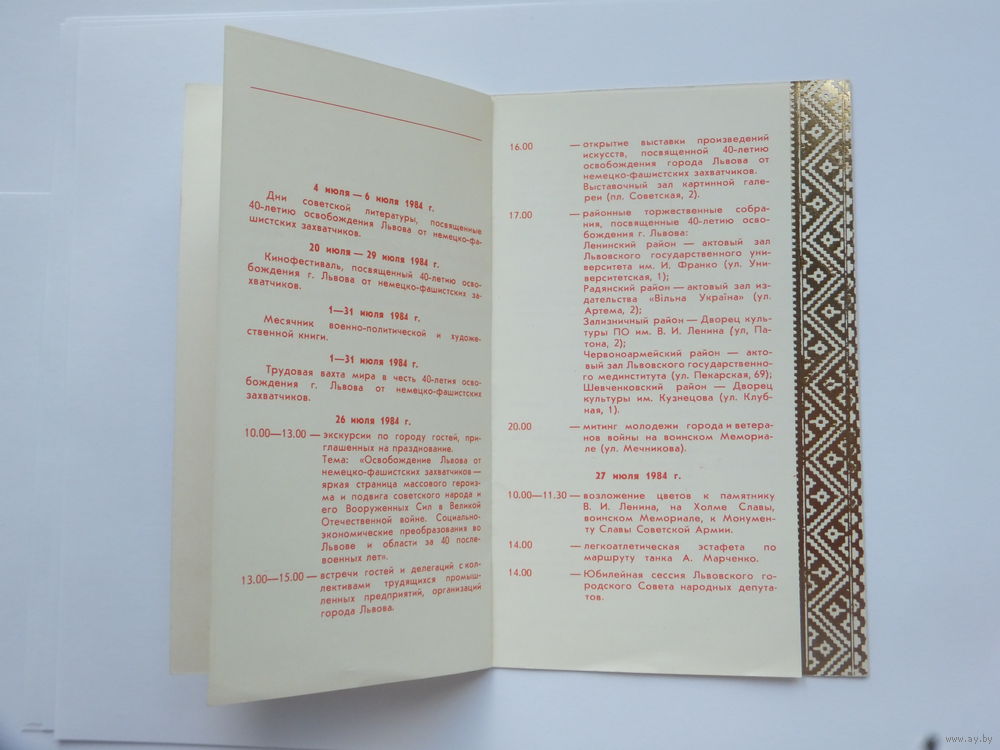 4 июля — 6 июля 1984 г.
Дни советской литературы, посвященные
40-летию освобождения Львова от немецко-фа-
шистских захватчиков.
20 июля — 29 июля 1984 г.
Кинофестиваль, посвященный 40-летию осво-
бождения г. Львова от немецко-фашистских за-
хватчиков.
1—31 июля 1984 г.
Месячник военно-политической и художе-
ственной книги.
1—31 июля 1984 г.
Трудовая вахта мира в честь 40-летия осво-
бождения г. Львова от немецко-фашистских
захватчиков.
26 июля 1984 г.
10.00—13.00 — экскурсии по городу гостей, при-
глашенных на празднование.
Тема: «Освобождение Львова от
немецко-фашистских захватчиков —
яркая страница массового героиз-
ма и подвига советского народа и
его Вооруженных Сил в Великой
Отечественной войне. Социально-
экономические преобразования во
Львове и области за 40 после-
военных лет».
13.00—15.00 — встречи гостей и делегаций с кол-
лективами трудящихся промыш-
ленных предприятий, организаций
города Львова.
16.00 — открытие выставки произведений
искусств, посвященной 40-летию
освобождения города Львова от
немецко-фашистских захватчиков.
Выставочный зал картинной гале-
реи (пл. Советская, 2).
17.00 — районные торжественные собра-
ния, посвященные 40-летию осво-
бождения г. Львова:
Ленинский район — актовый зал
Львовского государственного уни-
верситета им. И. Франко (ул. Уни-
верситетская, 1);
Радянский район — актовый зал из-
дательства «Вільна Україна» (ул.
Артема, 2);
Зализничный район — Дворец куль-
туры ПО им. В. И. Ленина (ул, Па-
тона, 2);
Червоноармейский район — акто-
вый зал Львовского государственно-
го мединститута (ул. Пекарская, 69);
Шевченковский район — Дворец
культуры им. Кузнецова (ул. Клуб-
ная, 1).
20.00 — митинг молодежи города и ветера-
нов войны на воинском Мемориа-
ле (ул. Мечникова).
27 июля 1984 г.
10.00—11.30 — возложение цветов к памятнику
В. И. Ленина, на Холме Славы,
воинском Мемориале, к Монумен-
ту Славы Советской Армии.
14.00 — легкоатлетическая эстафета по
маршруту танка А. Марченко.
14.00 — Юбилейная сессия Львовского го-
родского Совета народных депута-
тов.
www.ay.by